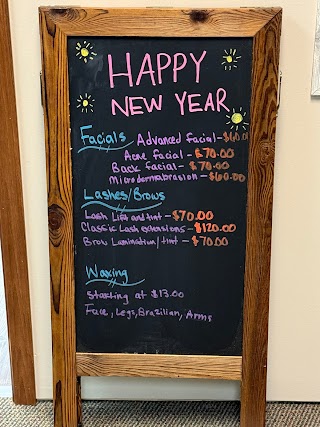 HAPPY
NEW YEAR
Facials Advanced facial - $60.00
Acne facial - $70.00
Back facial - $70.00
Microdermabrasion - $60.00
Lashes/Brows
Lash Lift and tint - $70.00
Classic Lash extensions - $120.00
Brow Lamination/tint - $70.00
Waxing
Starting at $13.00
Face, Legs, Brazilian, Arms